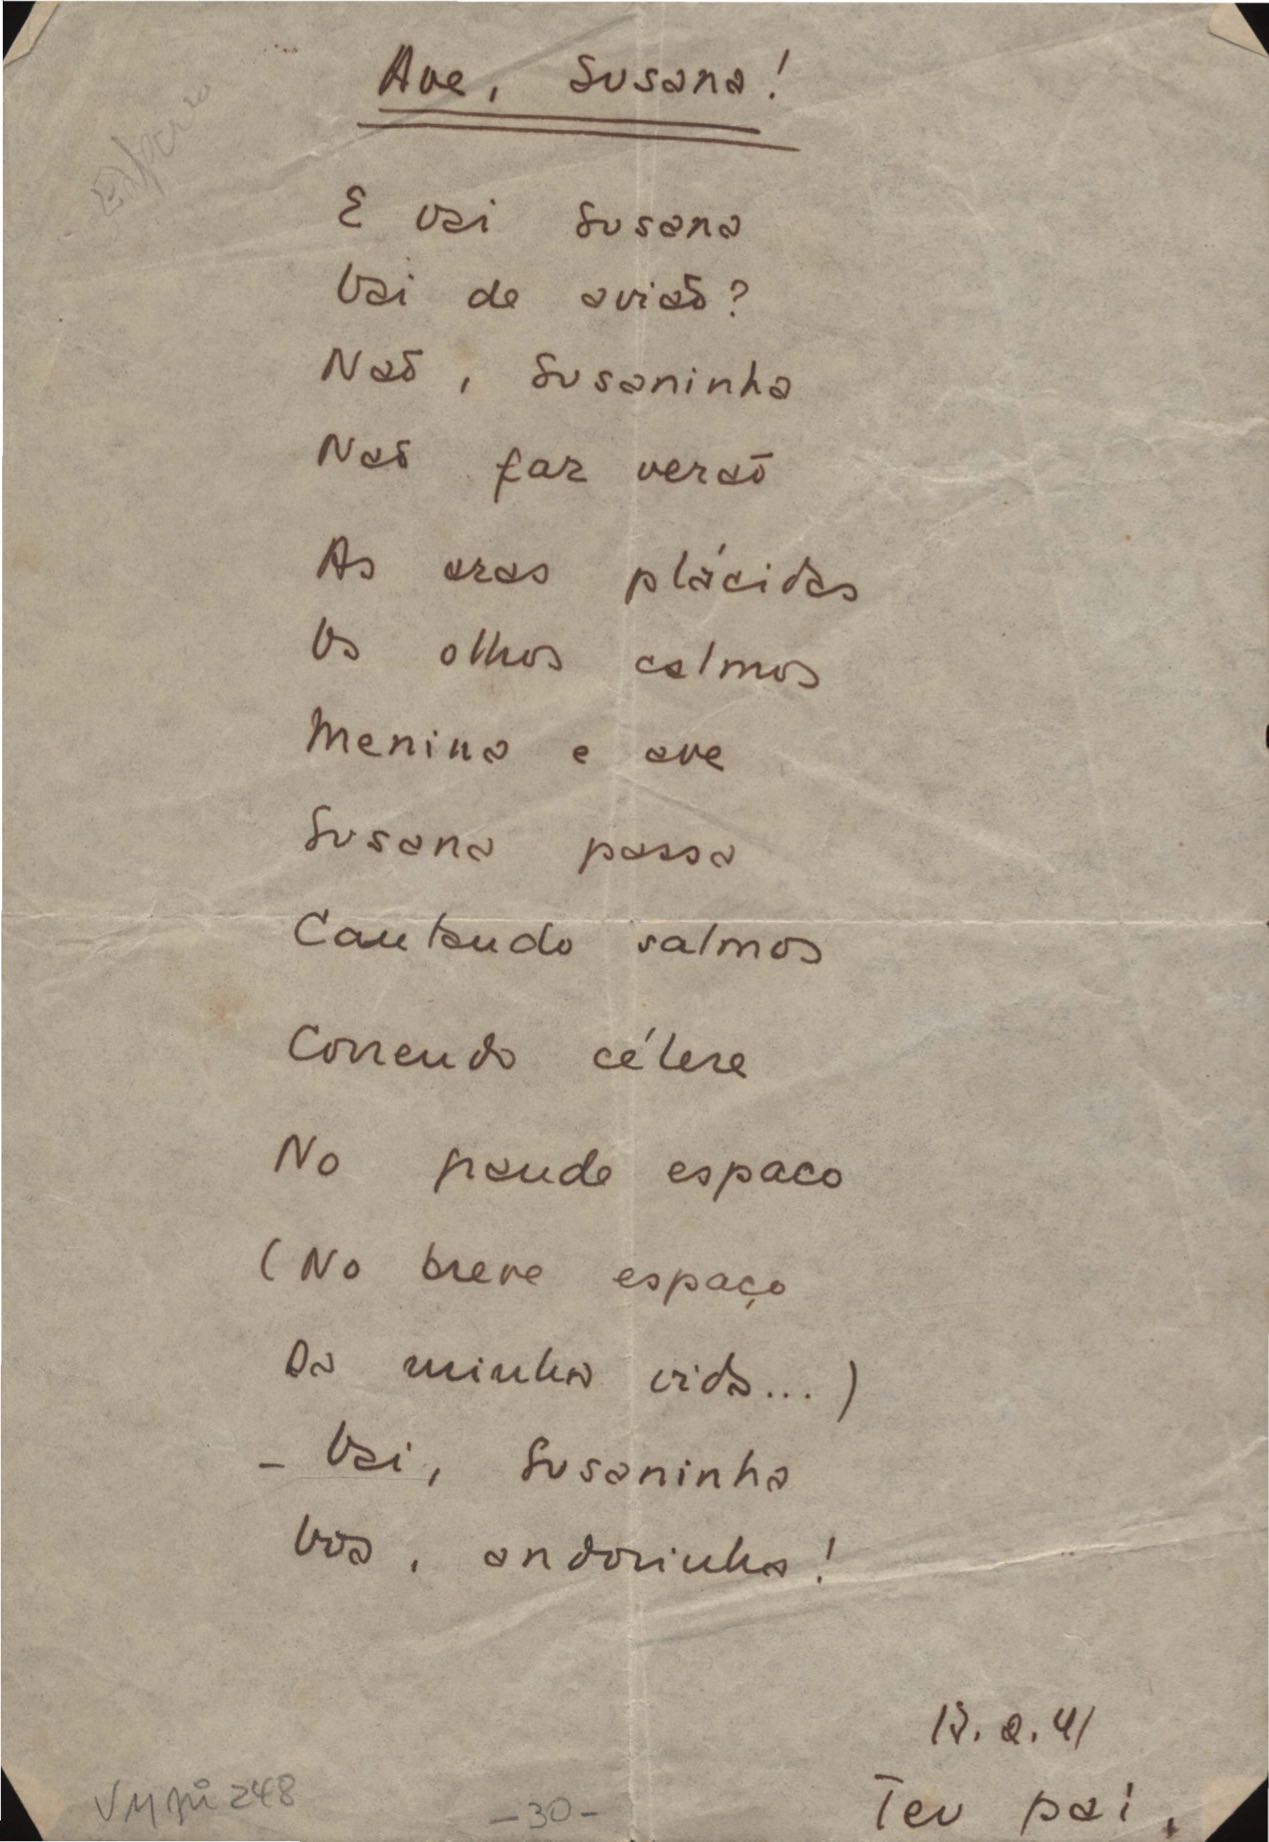 Ave, Susana!
E vai Susana
Vai de avião?
Não, Susaninha
Não faz verão
As asas plácidas
Os olhos calmos
Menina e ave
Susana passa
Cantando salmos
Correndo célere
No grande espaco
(No breve espaço
Da minha vida...)
- Vai, Susaninha
Vôa, andorinha!
2.41
Teu pai.
VM 248
-30-